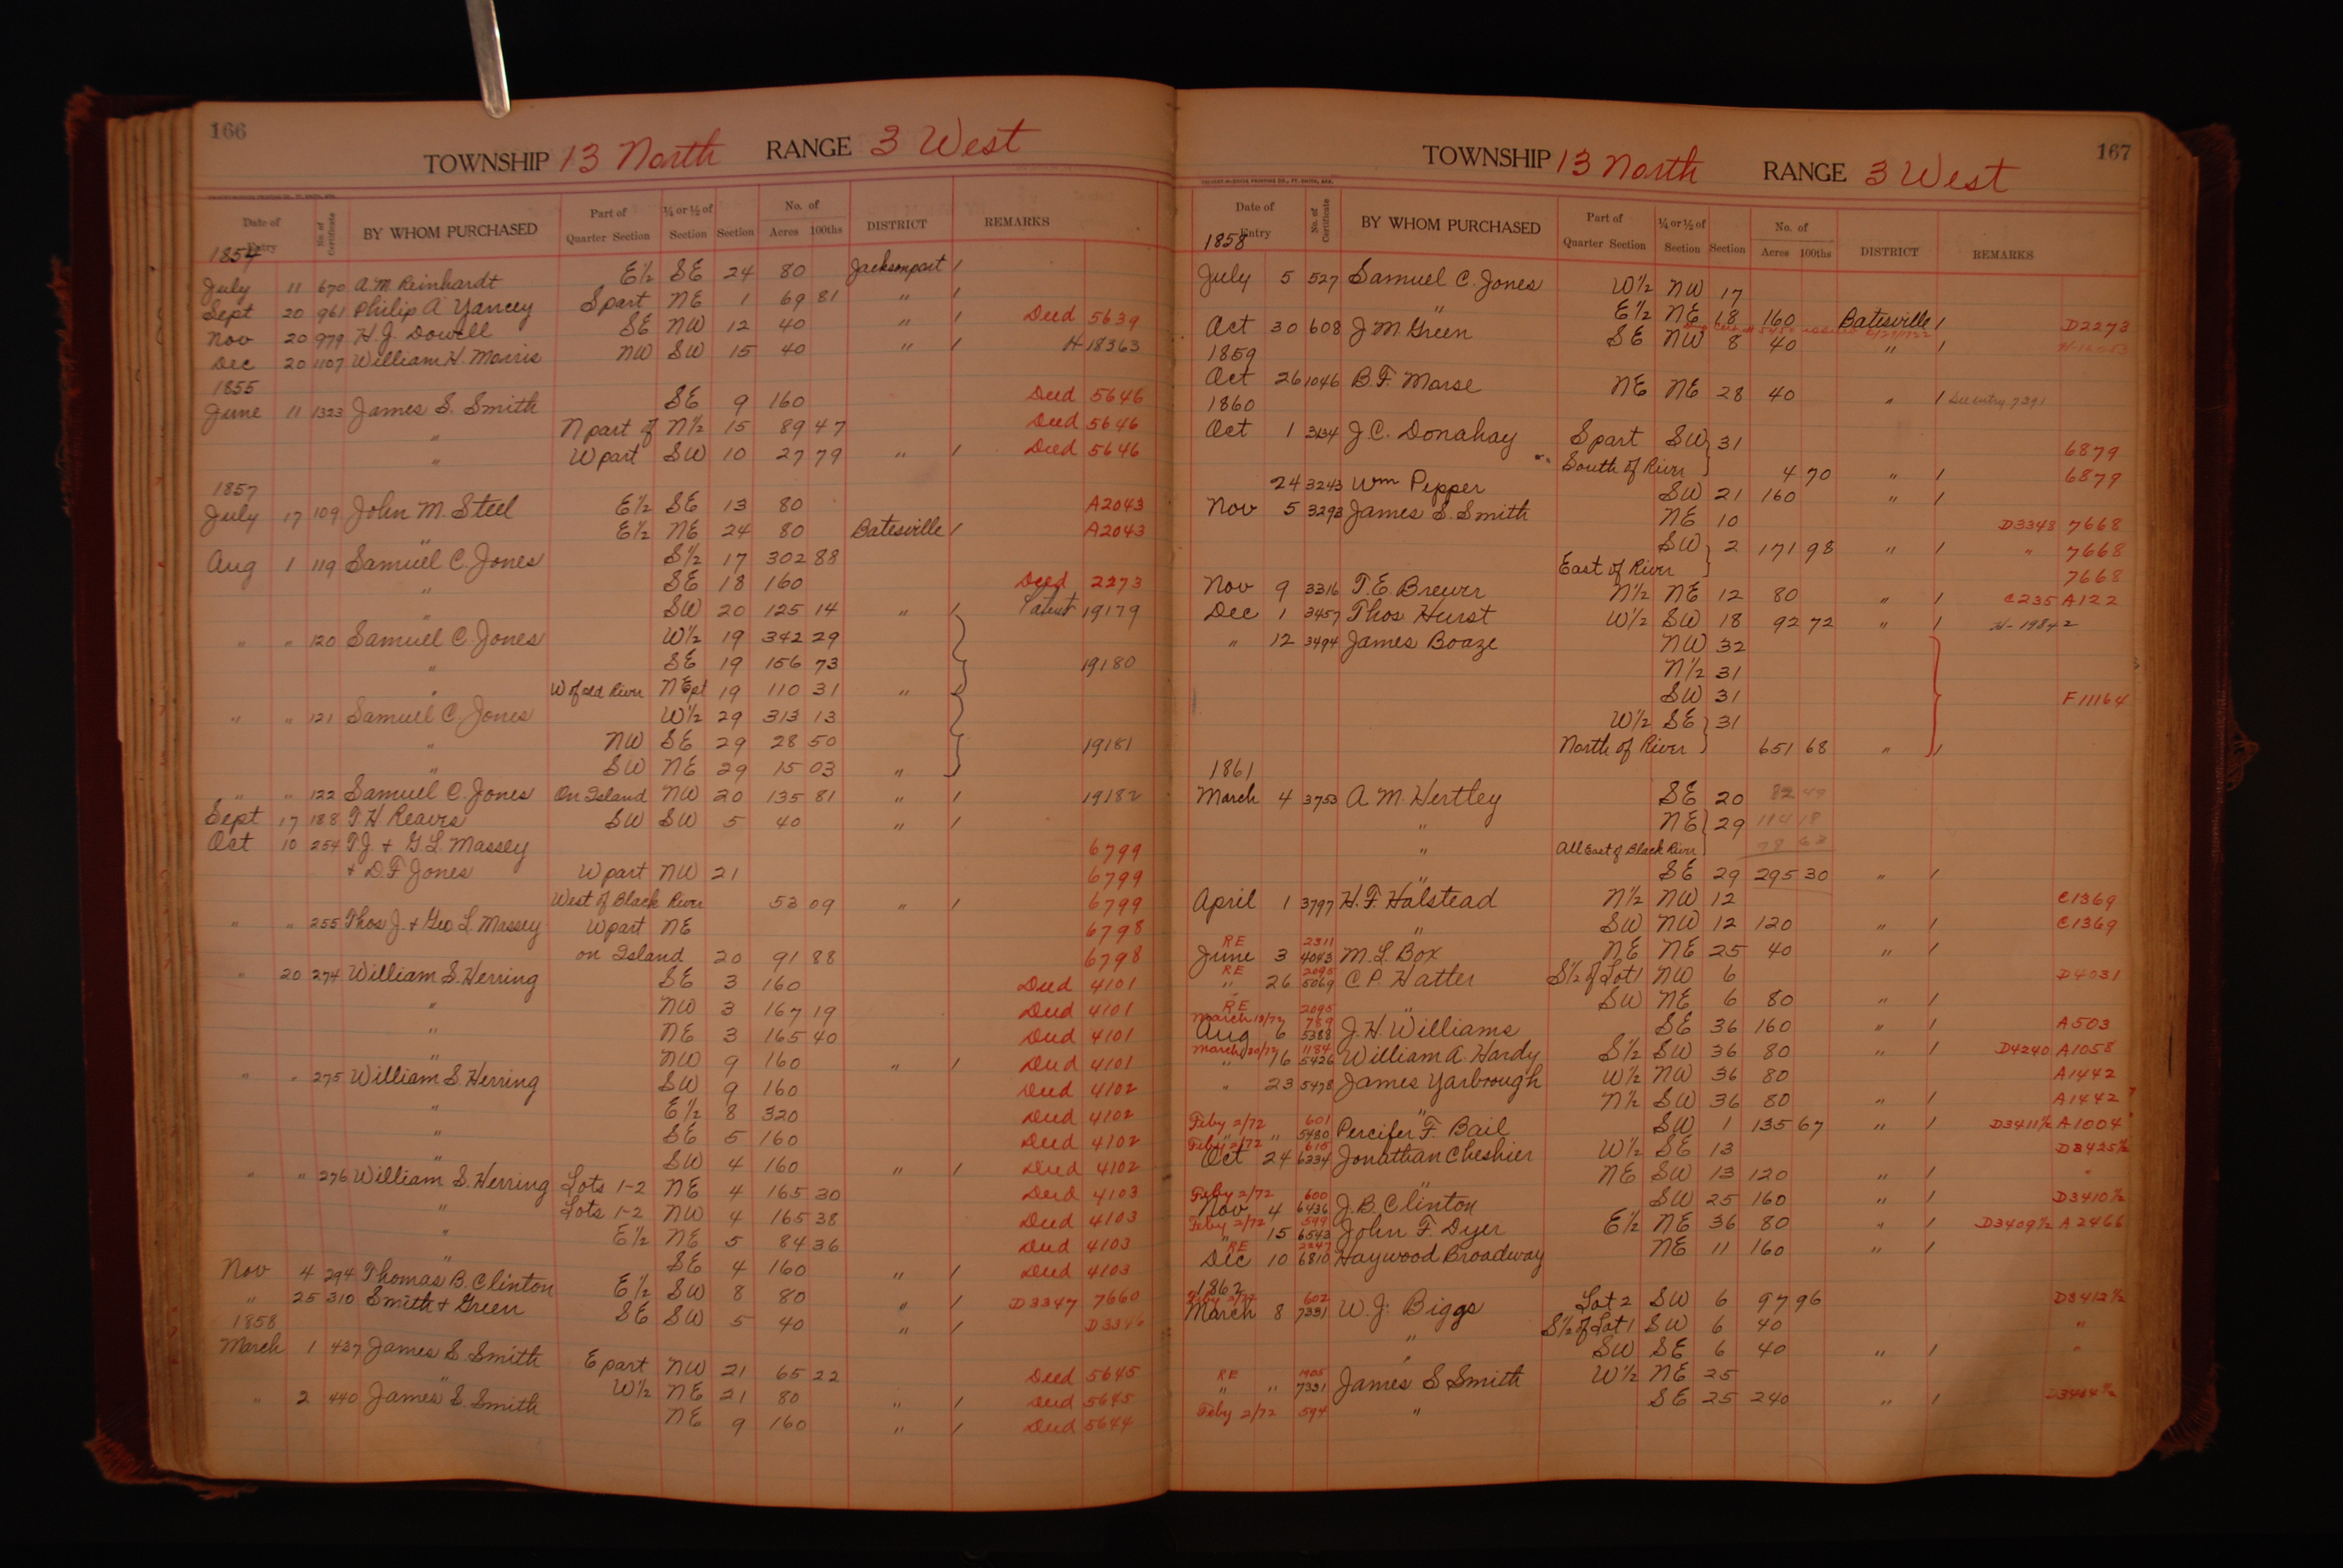 166
TOWNSHIP 13 North RANGE 3 West
Date of Entry No. of Certificate BY WHOM PURCHASED Part of Quarter Section ¼ or ½ of Section Section No. of Acres 100ths DISTRICT REMARKS
1854
July 11 670 A. M. Reinhardt E½ SE 24 80 Jacksonport /
Sept 20 961 Philip A Yancey S part NE 1 69 81 " /
Nov 20 979 H. J. Dowell SE NW 12 40 " / Deed 5639
Dec 20 1107 William H. Morris NW SW 15 40 " / H 18363
1855
June 11 1323 James S. Smith SE 9 160 Deed 5646
" N part of N½ 15 89 47 Deed 5646
" W part SW 10 27 79 " / Deed 5646
1857
July 17 109 John M. Steel E½ SE 13 80 A2043
" E½ NE 24 80 Batesville / A2043
Aug 1 119 Samuel C. Jones S½ 17 302 88
" SE 18 160 Deed 2273
" SW 20 125 14 " / Patent 19179
" " 120 Samuel C. Jones W½ 19 342 29
" SE 19 156 73 19180
" W of old River NE pt 19 110 31 "
" " 121 Samuel C. Jones W½ 29 313 13
" NW SE 29 28 50 19181
" SW NE 29 15 03 "
" " 122 Samuel C. Jones On Island NW 20 135 81 " / 19182
Sept 17 188 T. H. Reaves SW SW 5 40 " /
Oct 10 254 T. J. + G L Massey 6799
+ D. F Jones W part NW 21 6799
West of Black River 53 09 " / 6799
" " 255 Thos J. + Geo L. Massey W part NE 6798
on Island 20 91 88 6798
" 20 274 William S. Herring SE 3 160 Deed 4101
" NW 3 167 19 Deed 4101
" NE 3 165 40 Deed 4101
" NW 9 160 " / Deed 4101
" " 275 William S. Herring SW 9 160 Deed 4102
" E½ 8 320 Deed 4102
" SE 5 160 Deed 4102
" SW 4 160 " / Deed 4102
" " 276 William S. Herring Lots 1-2 NE 4 165 30 Deed 4103
" Lots 1-2 NW 4 165 38 Deed 4103
" E½ NE 5 84 36 Deed 4103
" SE 4 160 " / Deed 4103
Nov 4 294 Thomas B. Clinton E½ SW 8 80 " / D3347 7660
" 25 310 Smith + Green SE SW 5 40 " / D3346
1858
March 1 437 James S. Smith E part NW 21 65 22 Deed 5645
" W½ NE 21 80 " / Deed 5645
" 2 440 James S. Smith NE 9 160 " / Deed 5644
167
TOWNSHIP 13 North RANGE 3 West
Date of Entry No. of Certificate BY WHOM PURCHASED Part of Quarter Section ¼ or ½ of Section Section No. of Acres 100ths DISTRICT REMARKS
1858
July 5 527 Samuel C. Jones W½ NW 17
" E½ NE 18 160 Batesville / D2273
Oct 30 608 J. M. Green SE NW 8 40 " /
1859
Oct 26 1046 B. F. Morse NE NE 28 40 " / See entry 7391
1860
Oct 1 3134 J. C. Donahay S part SW 31 6879
South of River 4 70 " / 6879
24 3243 Wm Pepper SW 21 160 " /
Nov 5 3293 James S. Smith NE 10 D3348 7668
SW 2 171 98 " / " 7668
East of River 7668
Nov 9 3316 T. E. Brewer N½ NE 12 80 " / C235 A122
Dec 1 3457 Thos Hurst W½ SW 18 92 72 " / H-19842
" 12 3494 James Boaze NW 32
N½ 31
SW 31 F11164
W½ SE 31
North of River 651 68 " /
1861
March 4 3753 A. M. Hertley SE 20 82 49
" NE 29 114 18
" All East of Black River 78 63
" SE 29 295 30 " /
April 1 3797 H. F. Halstead N½ NW 12 C1369
" SW NW 12 120 " / C1369
RE 2311
June 3 4043 M. L. Box NE NE 25 40 " /
RE 2095
" 26 5069 C. P. Hatter S½ of Lot 1 NW 6 D4031
RE 2095 " SW NE 6 80 " /
March 18/72 789
Aug 6 5388 J. H. Williams SE 36 160 " / A503
March 20/72 1184
" 16 5426 William A. Hardy S½ SW 36 80 " / D4240 A1058
" 23 5478 James Yarbrough W½ NW 36 80 A1442
" N½ SW 36 80 " / A1442
Feby 2/72 601
" " 5480 Percifer F. Bail SW 1 135 67 " / D3411½ A1004
Feby 2/72 615
Oct 24 6334 Jonathan Cheshier W½ SE 13 D3425½
" NE SW 13 120 " / "
Feby 2/72 600
Nov 4 6436 J. B. Clinton SW 25 160 " / D3410½
Feby 2/72 599
" 15 6543 John F. Dyer E½ NE 36 80 " / D3409½ A2466
RE 2247
Dec 10 6810 Haywood Broadway NE 11 160 " /
1862
Feby 2/72 602
March 8 7331 W. J. Biggs Lot 2 SW 6 97 96 D3412½
" S½ of Lot 1 SW 6 40 "
" SW SE 6 40 " / "
RE 1905
" " 7331 James S Smith W½ NE 25
Feby 2/72 594 " SE 25 240 " / D3404½